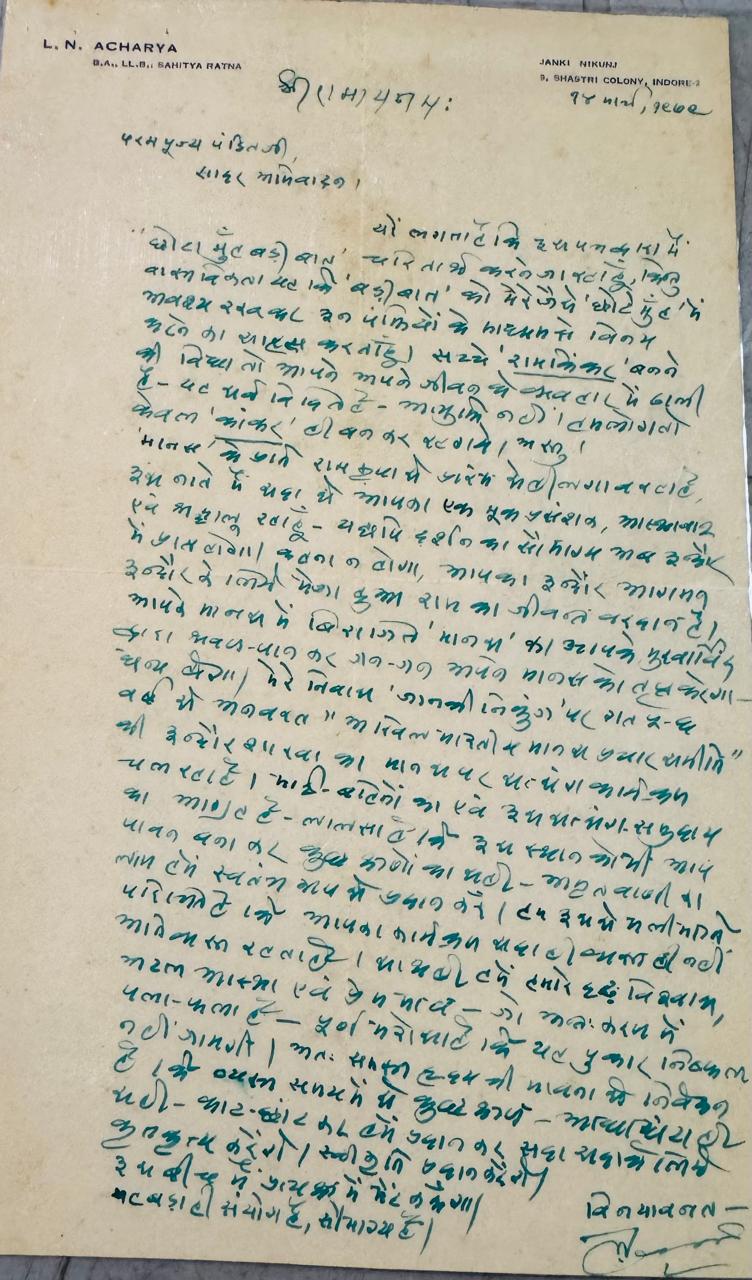 L. N. ACHARYA
B.A., LL.B., SAHITYA RATNA
JANKI NIKUNJ
9, SHASTRI COLONY, INDORE-2
श्री रामायनमः
१४ मार्च, १९७२
परमपूज्य पंडितजी,
सादर अभिवादन।
यों लगता है कि इस पत्र द्वारा मैं
'छोटा मुँह बड़ी बात' चरितार्थ करने जा रहा हूँ, किन्तु
वास्तविकता यह कि 'बड़ी बात' को मेरे जैसे 'छोटे मुँह' में
अवश्य रखकर इन पंक्तियों के माध्यम से विनय
करने का साहस करता हूँ। सच्चे 'रामकिंकर' बनने
की विद्या तो आपने अपने जीवन के व्यवहार में ढाली
है - यह सर्व विदित है - अत्युक्ति नहीं। हमलोग तो
केवल 'कांकर' ही बन कर रह गये। अस्तु।
'मानस' के प्रति राम कृपा से प्रारंभ से ही लगाव रहा है,
इस नाते मैं सदा से आपका एक मूक प्रशंसक, आस्थावान
एवं श्रद्धालु रहा हूँ - यद्यपि दर्शन का सौभाग्य अब इन्दौर
में प्राप्त होगा। कहना न होगा, आपका इन्दौर आगमन
इन्दौर के लिये प्रभु राम का जीवन्त वरदान है।
आपके मानस में बिराजते 'मानस' का आपके मुखारविंद
द्वारा श्रवण-पान कर जन-जन अपने मानस को तृप्त करेगा -
धन्य होगा। मेरे निवास 'जानकी निकुंज' पर गत ५-६
वर्ष से अनवरत "अखिल भारतीय मानस प्रचार समिति"
की इन्दौर शाखा का मानस पर सत्संग कार्यक्रम
चल रहा है। भाई-बहिनों का एवं इस सत्संग-समुदाय
का आग्रह है - लालसा है कि इस स्थान को भी आप
पावन बना कर कुछ क्षणों का सही - अमृतवाणी का
लाभ हमें स्वतंत्र रूप से प्रदान करें। हम इससे भलीभांति
परिचित हैं कि आपका कार्यक्रम सदा ही व्यस्त ही नहीं
अतिव्यस्त रहता है। साथ ही हमें हमारे दृढ़ विश्वास,
अटल आस्था एवं प्रेम भाव - जो अन्तःकरण में
पला-फला है - पूर्ण भरोसा है कि यह पुकार निष्फल
नहीं जायगी। अतः समस्त हृदय की भावना से निवेदन
है कि व्यस्त समय में से कुछ क्षण -
सही - काट-छांट कर हमें प्रदान कर सदा सदा के लिये
कृतकृत्य करेंगे। स्वीकृति प्रदान करेंगे।
इस बीच मैं प्रत्यक्ष में भेंट करूँगा।
यह बड़ा ही संयोग है, सौभाग्य है।
विनयावनत -